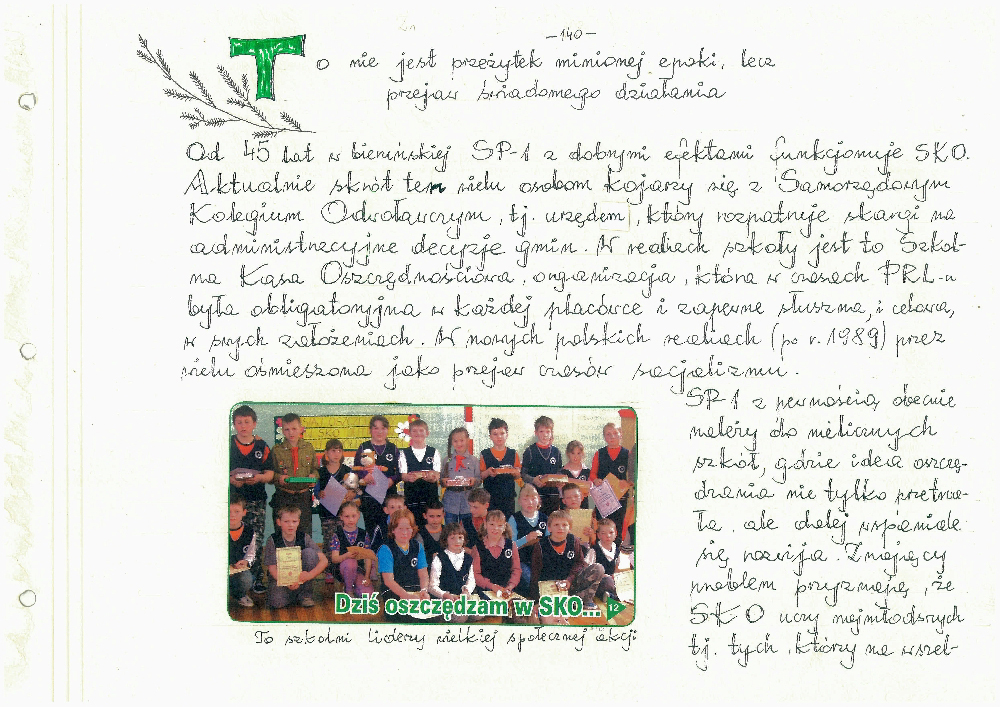 -140-
To nie jest przeżytek minionej epoki, lecz
przejaw świadomego działania
Od 45 lat w bieruńskiej SP-1 z dobrymi efektami funkcjonuje SKO.
Aktualnie skrót ten wielu osobom kojarzy się z Samorządowym
Kolegium Odwoławczym, tj. urzędem, który rozpatruje skargi na
administracyjne decyzje gmin. W realiach szkoły jest to Szkol-
na Kasa Oszczędnościowa, organizacja, która w czasach PRL-u
była obligatoryjna w każdej placówce i zapewne słuszna, i celowa,
w swych założeniach. W nowych polskich realiach (po r. 1989) przez
wielu ośmieszona jako przejaw czasów socjalizmu.
SP-1 z pewnością obecnie
należy do nielicznych
szkół, gdzie idea oszczę-
dzania nie tylko przetrwa-
ła, ale dalej wspaniale
się rozwija. Znający
problem przyznają, że
SKO uczy najmłodszych
tj. tych, którzy na wszel-
Dziś oszczędzam w SKO... 12
To szkolni liderzy wielkiej społecznej akcji